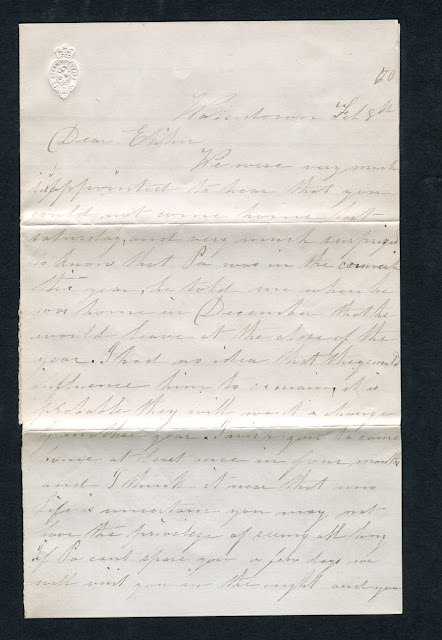 70
Watertown Feb 8th
Dear
We were very much
disappointed to hear that you
could not come home last
saturday, and very much surprised
to know that Pa was in the council
this year, he told me when he
was home in December that he
would leave at the close of the
year. I had no idea that they could
influence him to remain, it is
probable they will want a change
by another year. I wish you to come
home at least once in four months
and I think it near that now
Life is uncertain you may not
have the privilege of seeing all long
if Pa cant spare you a few days we
will visit you in the night and you